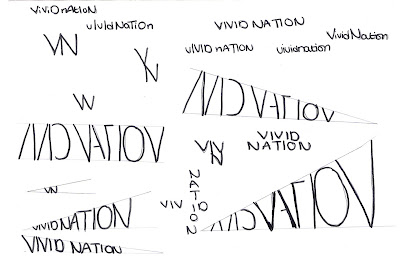 ViViD nATiON
viVidNaTiOn
VN
VN
VIVID NATION
uIVID nATION
vividnation
VividNation
VN
VIVID NATION
VIVID NATION
VN
VIVID
NATION
VN
VIV
NATION
VIVIDNATION
VIVIDNATION
VIVID NATION